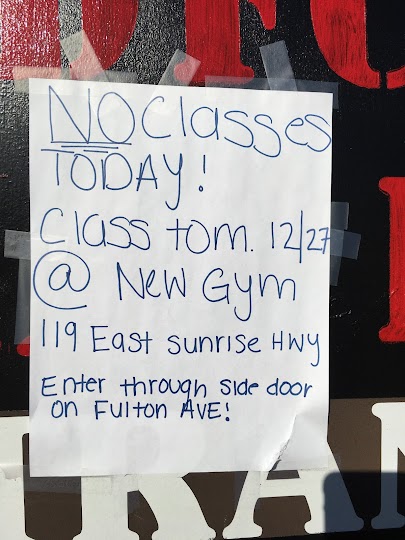 NO Classes
TODAY!
Class tom. 12/27
@ New Gym
119 East sunrise HWY
Enter through side door
on Fulton AVE!